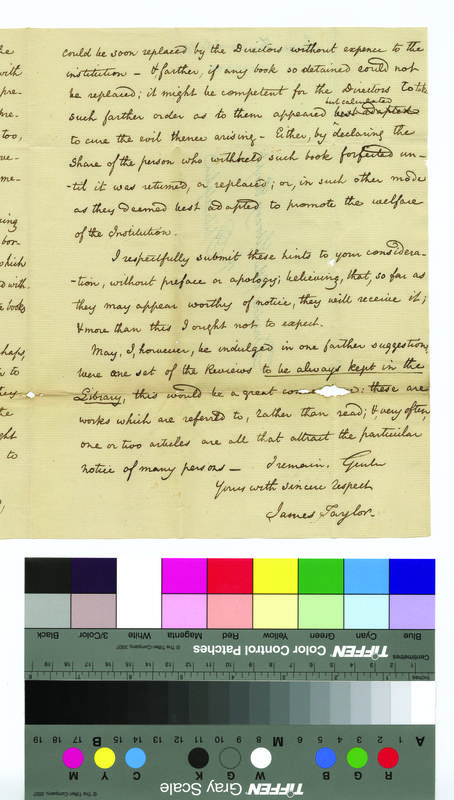 could be soon replaced by the Directors without expence to the
institution — & farther, if any book so detained could not
be replaced; it might be competent for the Directors to take
such farther order as to them appeared best adapted
best calculated
to cure the evil thence arising — Either, by declaring the
Share of the person who withheld such book forfeited un-
-til it was returned, or replaced; or, in such other mode
as they deemed best adapted to promote the welfare
of the Institution.
I respectfully submit these hints to your considera-
-tion, without preface or apology; believing, that, so far as
they may appear worthy of notice, they will receive it;
& more than this I ought not to expect.
May, I, however, be indulged in one farther suggestion,
were one set of the Reviews to be always kept in the
Library, this would be a great con : these are
works which are referred to, rather than read; & very often,
one or two articles are all that attract the particular
notice of many persons — I remain. Gentn
Yours with sincere respect
James Taylor.
the
with
pre-
too,
ve-
me-
ing
bor-
which
ed with.
books
haps,
to
they
the
ght
to
Blue Cyan Green Yellow Red Magenta White 3/Color Black
TIFFEN Color Control Patches
© The Tiffen Company, 2007
Centimetres
Inches
1 2 3 4 5 6 7 8 9 10 11 12 13 14 15 16 17 18 19
1 2 3 4 5 6 7 8
A 1 2 3 4 5 6 M 8 9 10 11 12 13 14 15 B 17 18 19
R G B W G K C Y M
TIFFEN Gray Scale
© The Tiffen Company, 2007